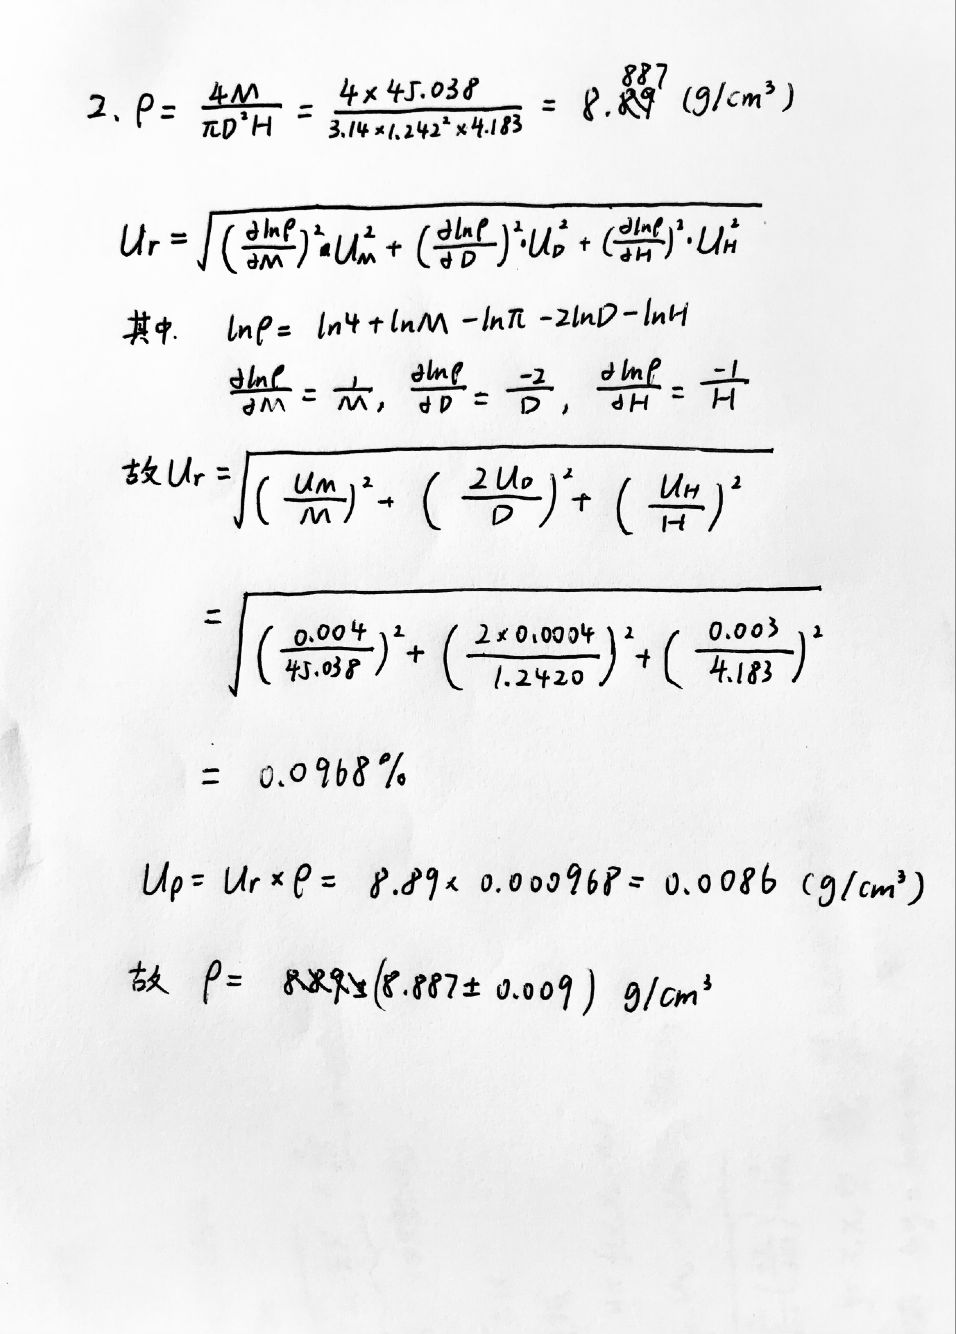 2. ρ = 4M/πD²H = 4×45.038/3.14×1.242²×4.183 = 8.887 (g/cm³)
Ur = √((∂lnρ/∂M)²·U_M² + (∂lnρ/∂D)²·U_D² + (∂lnρ/∂H)²·U_H²)
其中. lnρ = ln4 + lnM - lnπ - 2lnD - lnH
∂lnρ/∂M = 1/M, ∂lnρ/∂D = -2/D, ∂lnρ/∂H = -1/H
故 Ur = √((U_M/M)² + (2U_D/D)² + (U_H/H)²)
= √((0.004/45.038)² + (2×0.0004/1.2420)² + (0.003/4.183)²)
= 0.0968%
Uρ = Ur × ρ = 8.89 × 0.000968 = 0.0086 (g/cm³)
故 ρ = (8.887 ± 0.009) g/cm³